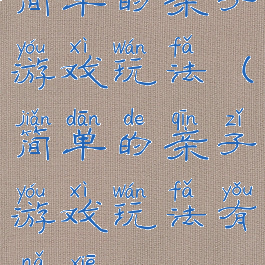 简单的亲子
yóu xì wán fǎ
游戏玩法（
jiǎn dān de qīn zǐ
简单的亲子
yóu xì wán fǎ yǒu
游戏玩法有
nǎ xiē